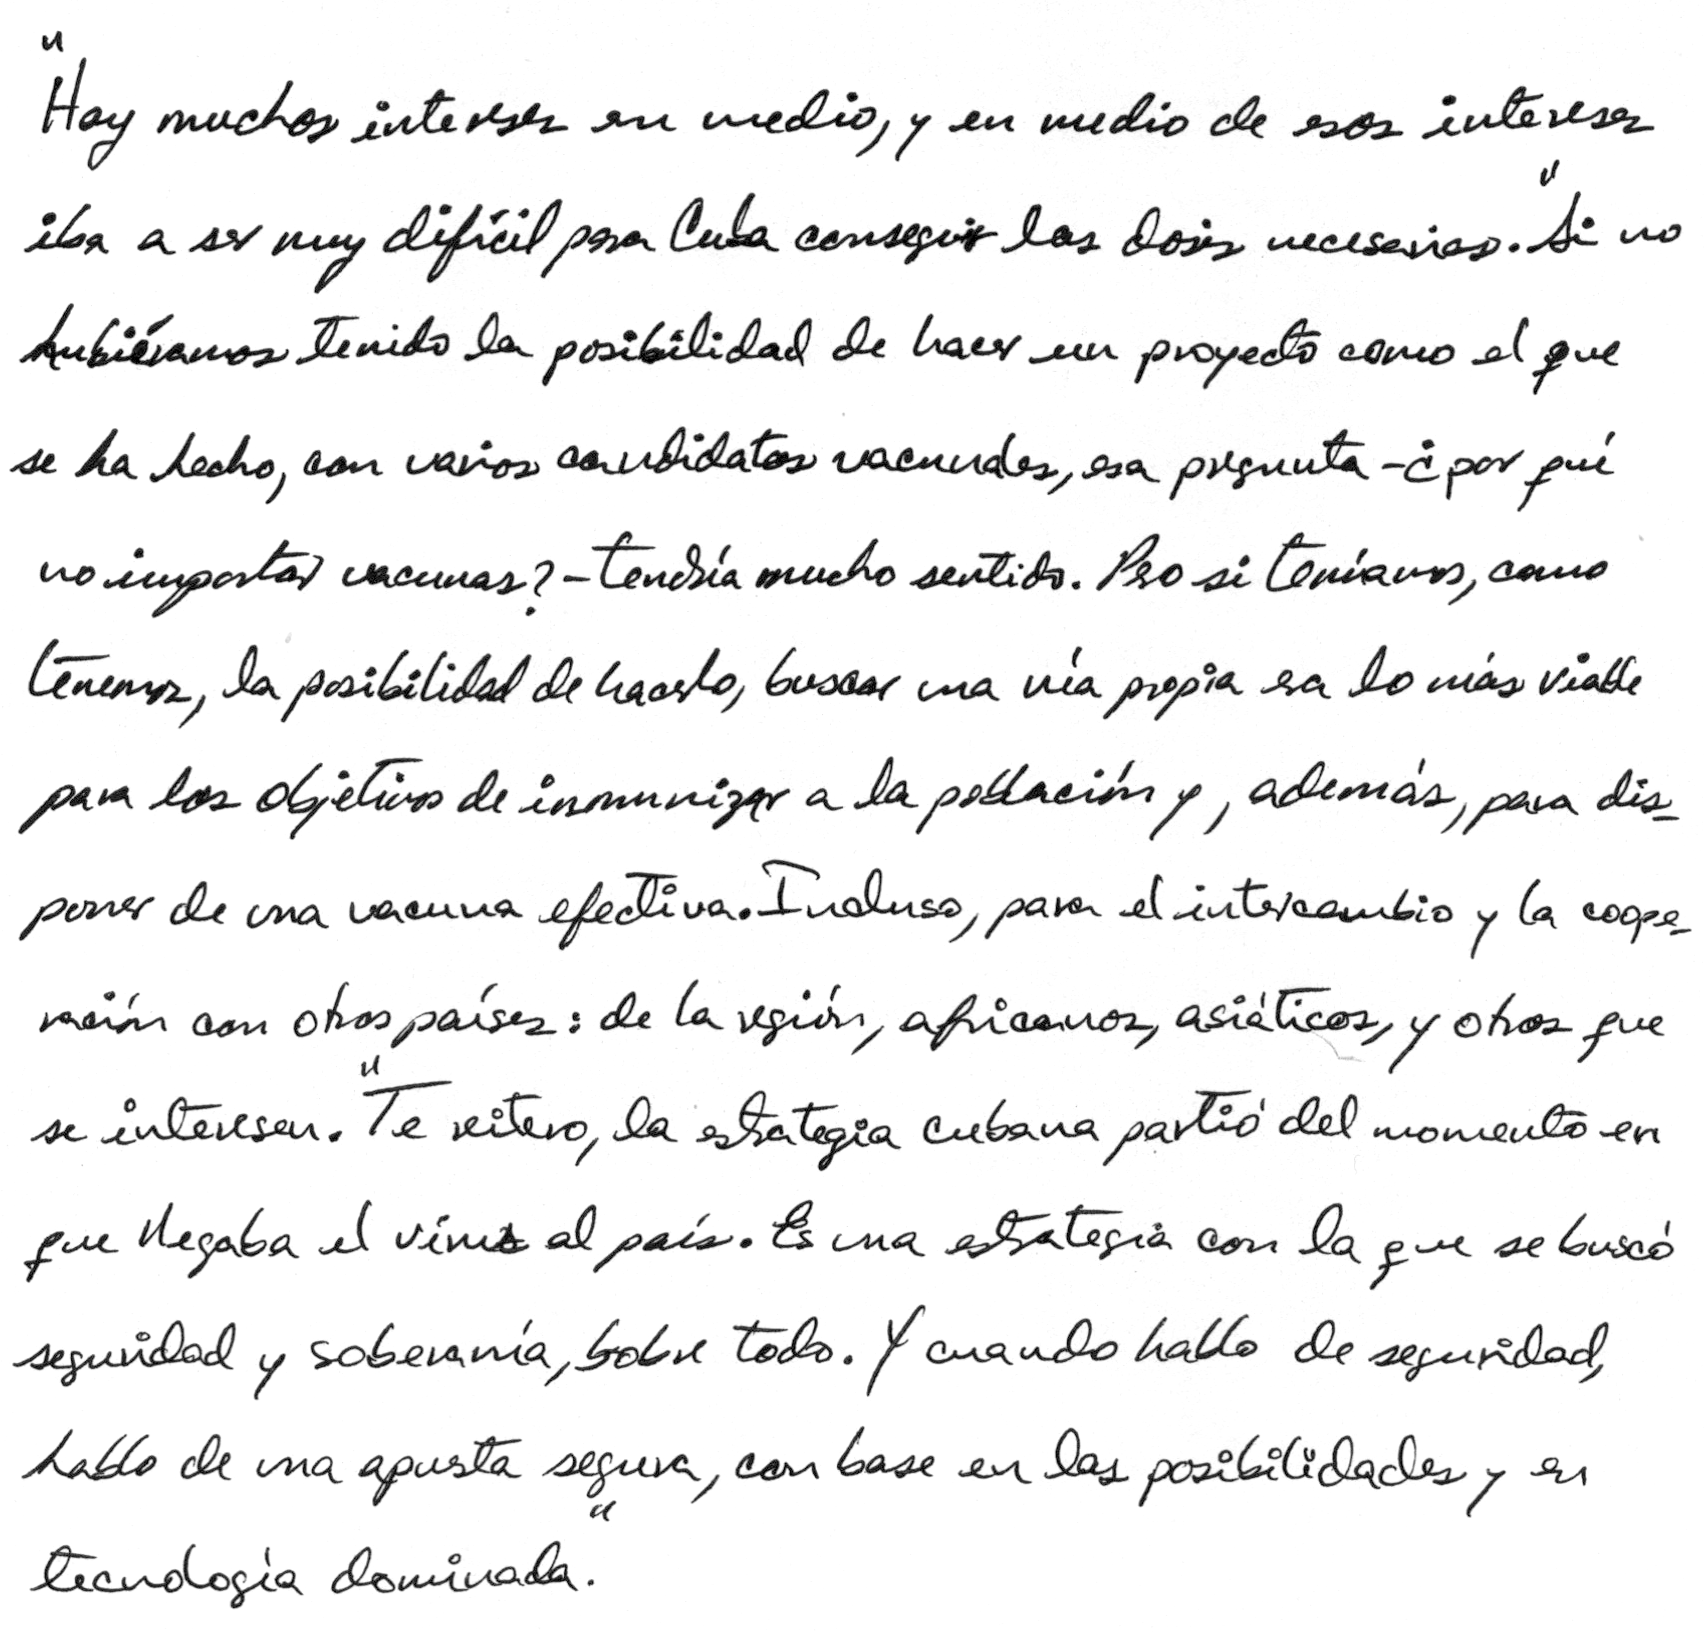 "Hay muchos intereses en medio, y en medio de esos intereses
iba a ser muy difícil para Cuba conseguir las dosis necesarias. "Si no
hubiéramos tenido la posibilidad de hacer un proyecto como el que
se ha hecho, con varios candidatos vacunales, esa pregunta -¿por qué
no importar vacunas?- tendría mucho sentido. Pero si teníamos, como
tenemos, la posibilidad de hacerlo, buscar una vía propia era lo más viable
para los objetivos de inmunizar a la población y, además, para dis-
poner de una vacuna efectiva. Incluso, para el intercambio y la coope-
ración con otros países: de la región, africanos, asiáticos, y otros que
se interesen. "Te reitero, la estrategia cubana partió del momento en
que llegaba el virus al país. Es una estrategia con la que se buscó
seguridad y soberanía, sobre todo. Y cuando hablo de seguridad,
hablo de una apuesta segura, con base en las posibilidades y en
tecnología dominada."